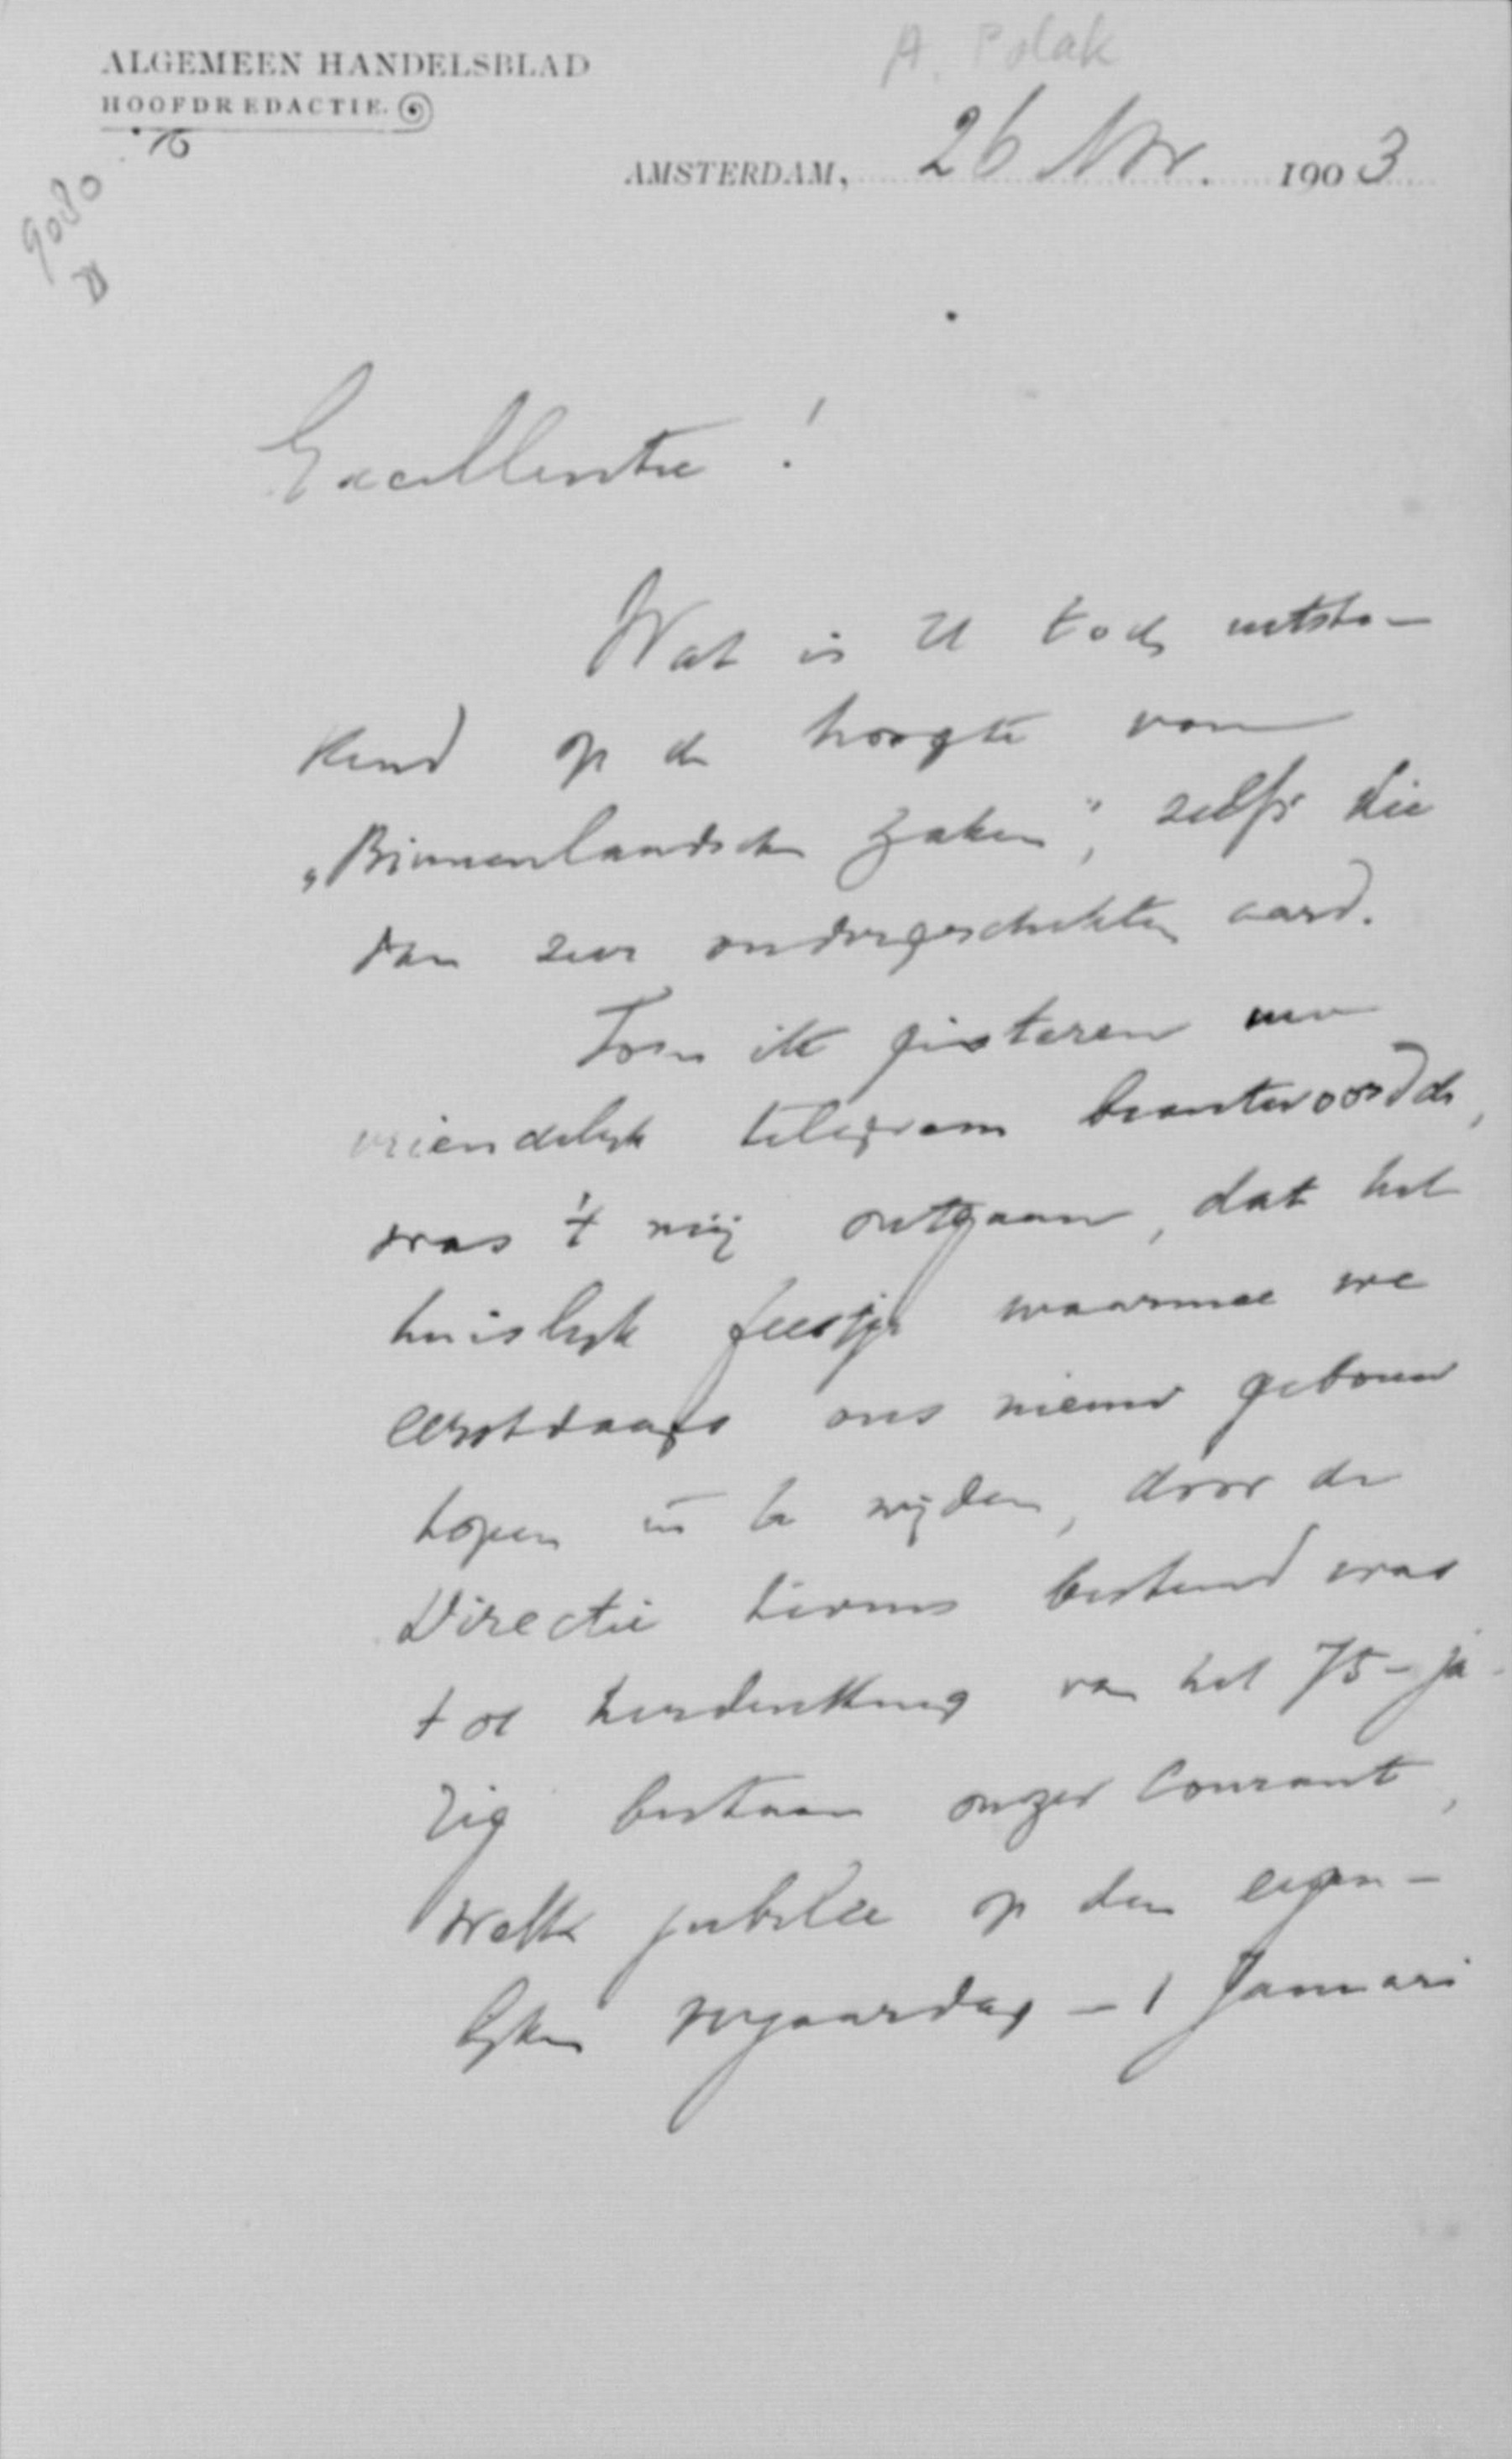 A. Polak
ALGEMEEN HANDELSBLAD
HOOFDREDACTIE.
AMSTERDAM, 26 Nov. 1903
9080
Excellentie!
Wat is U toch uitste-
kend op de hoogte van
„Binnenlandsche Zaken", zelfs die
van zeer ondergeschikten aard.
Toen ik gisteren uw
vriendelijk telegram beantwoordde,
was 't mij ontgaan, dat het
huislijk feestje waarmee we
eerstdaags ons nieuw gebouw
hopen in te wijden, door de
Directie tevens bestemd was
tot herdenking van het 75-ja-
rig bestaan onzer Courant,
welk jubilee op den eigen-
lijken verjaardag – 1 Januari